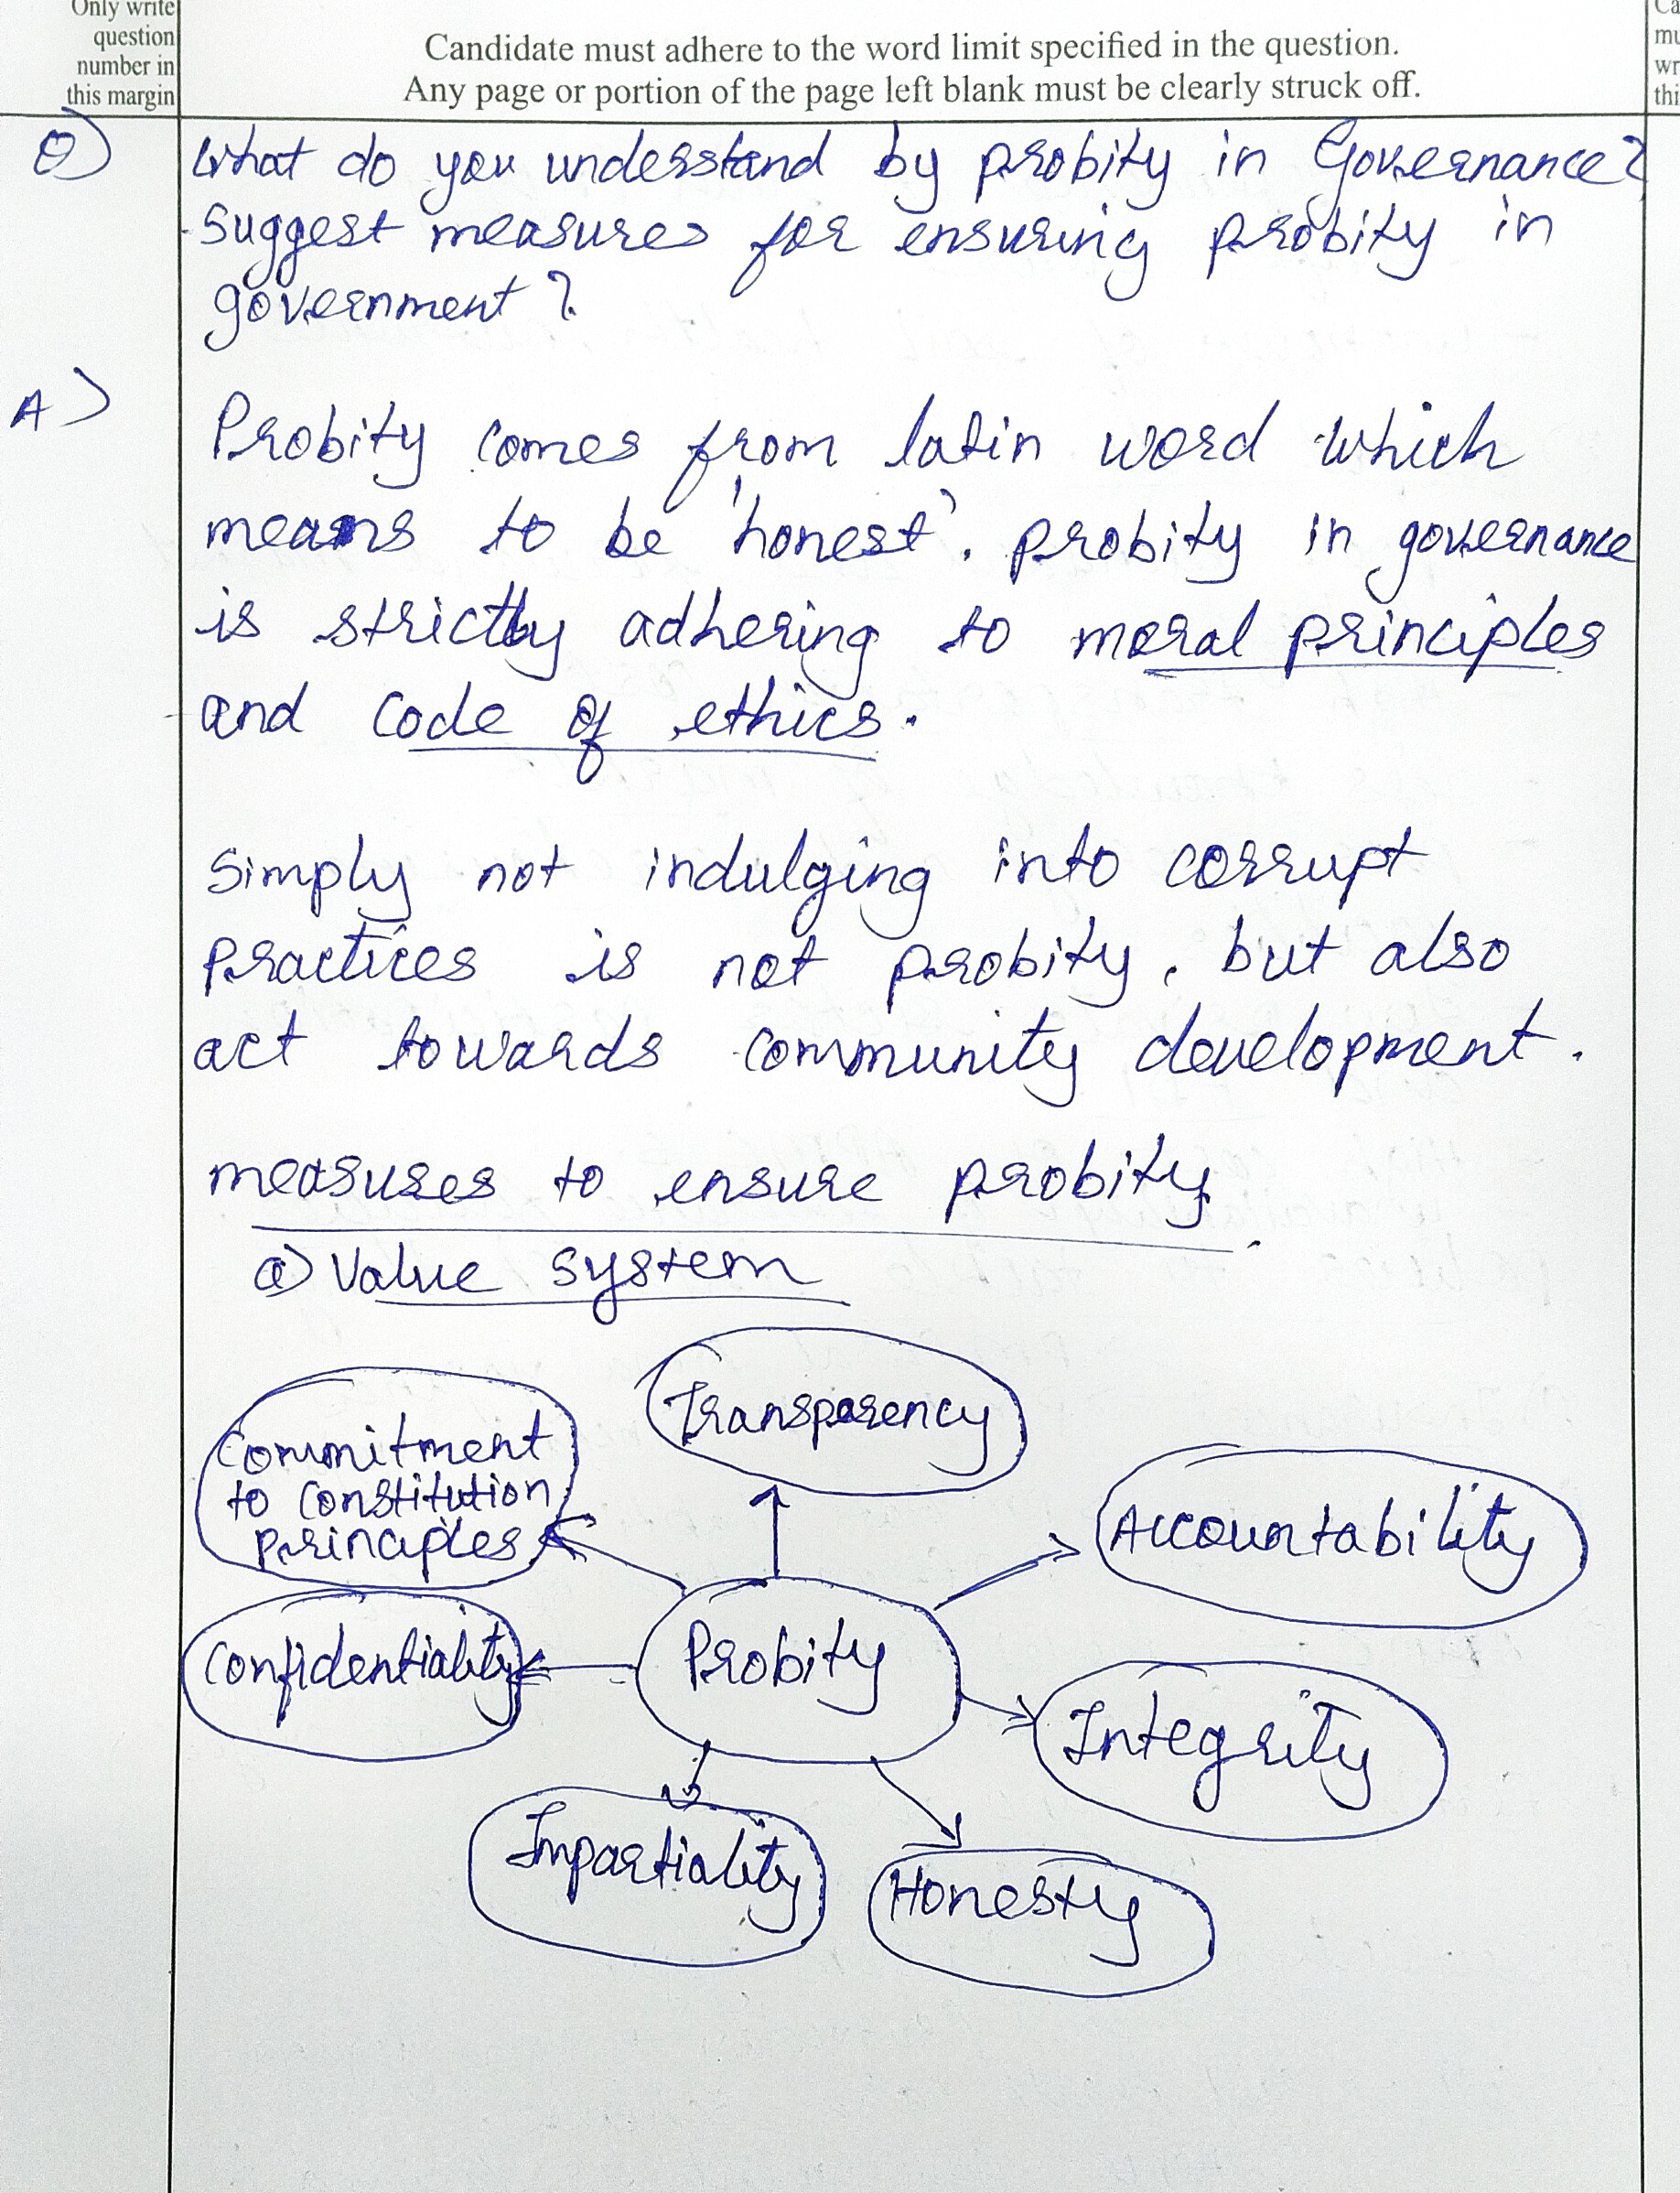 Only write
question
number in
this margin
Candidate must adhere to the word limit specified in the question.
Any page or portion of the page left blank must be clearly struck off.
Q)
What do you understand by probity in Governance?
Suggest measures for ensuring probity in
government?
A)
Probity comes from latin word which
means to be 'honest'. probity in governance
is strictly adhering to moral principles
and code of ethics.
Simply not indulging into corrupt
practices is not probity, but also
act towards community development.
measures to ensure probity.
a) Value system
Transparency
Commitment
to Constitution
principles
Accountability
Confidentiality
Probity
Integrity
Impartiality
Honesty